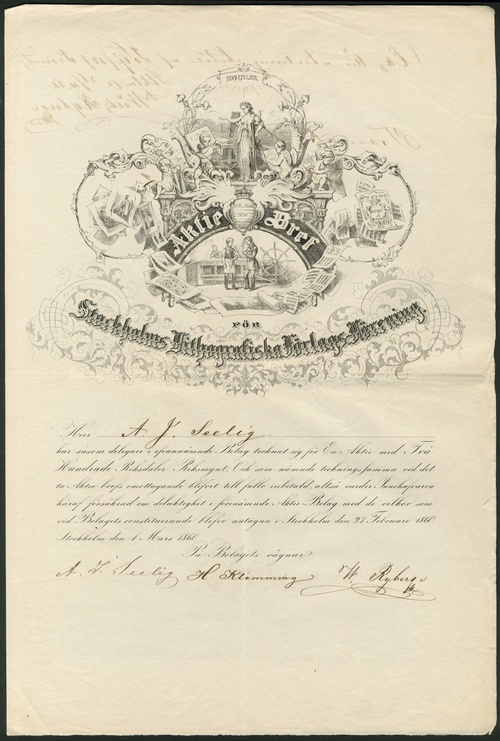 Aktie Bref
FÖR
Stockholms Lithografiska Förlags Förening.
Herr A. J. Seelig
har såsom delegare i ofvannämnde Bolag tecknat sig för En Aktie med Två
Hundrade Riksdaler Riksmynt. Och som nämnde teckningssumma vid det
ta Aktie brefs emottagande blifvit till fullo inbetald, alltså varder Innehafvaren
häraf försäkrad om delaktighet i förenämnde Aktie Bolag med de vilkor som
vid Bolagets constituerande blefvo antagna i Stockholm den 27 Februari 1860.
Stockholm den 1 Mars 1860.
På Bolagets vägnar
A. J. Seelig H. Klemming W. Ryberg